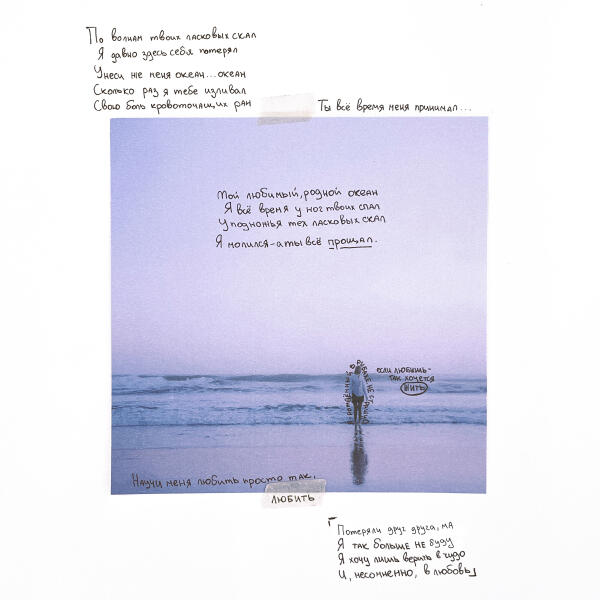 По волнам твоих ласковых скал
Я давно здесь себя потерял
Унеси же меня океан...океан
Сколько раз я тебе изливал
Свою боль кровоточащих ран
Ты всё время меня принимал...
Мой любимый, родной океан
Я всё время у ног твоих спал
У подножья тех ласковых скал
Я молился-а ты всё прощал.
в рубахе не страшно
если любишь-
так хочется
жить
Научи меня любить просто так,
любить
「Потеряли друг друга, ма
Я так больше не буду
Я хочу лишь верить в чудо
И, несомненно, в любовь」